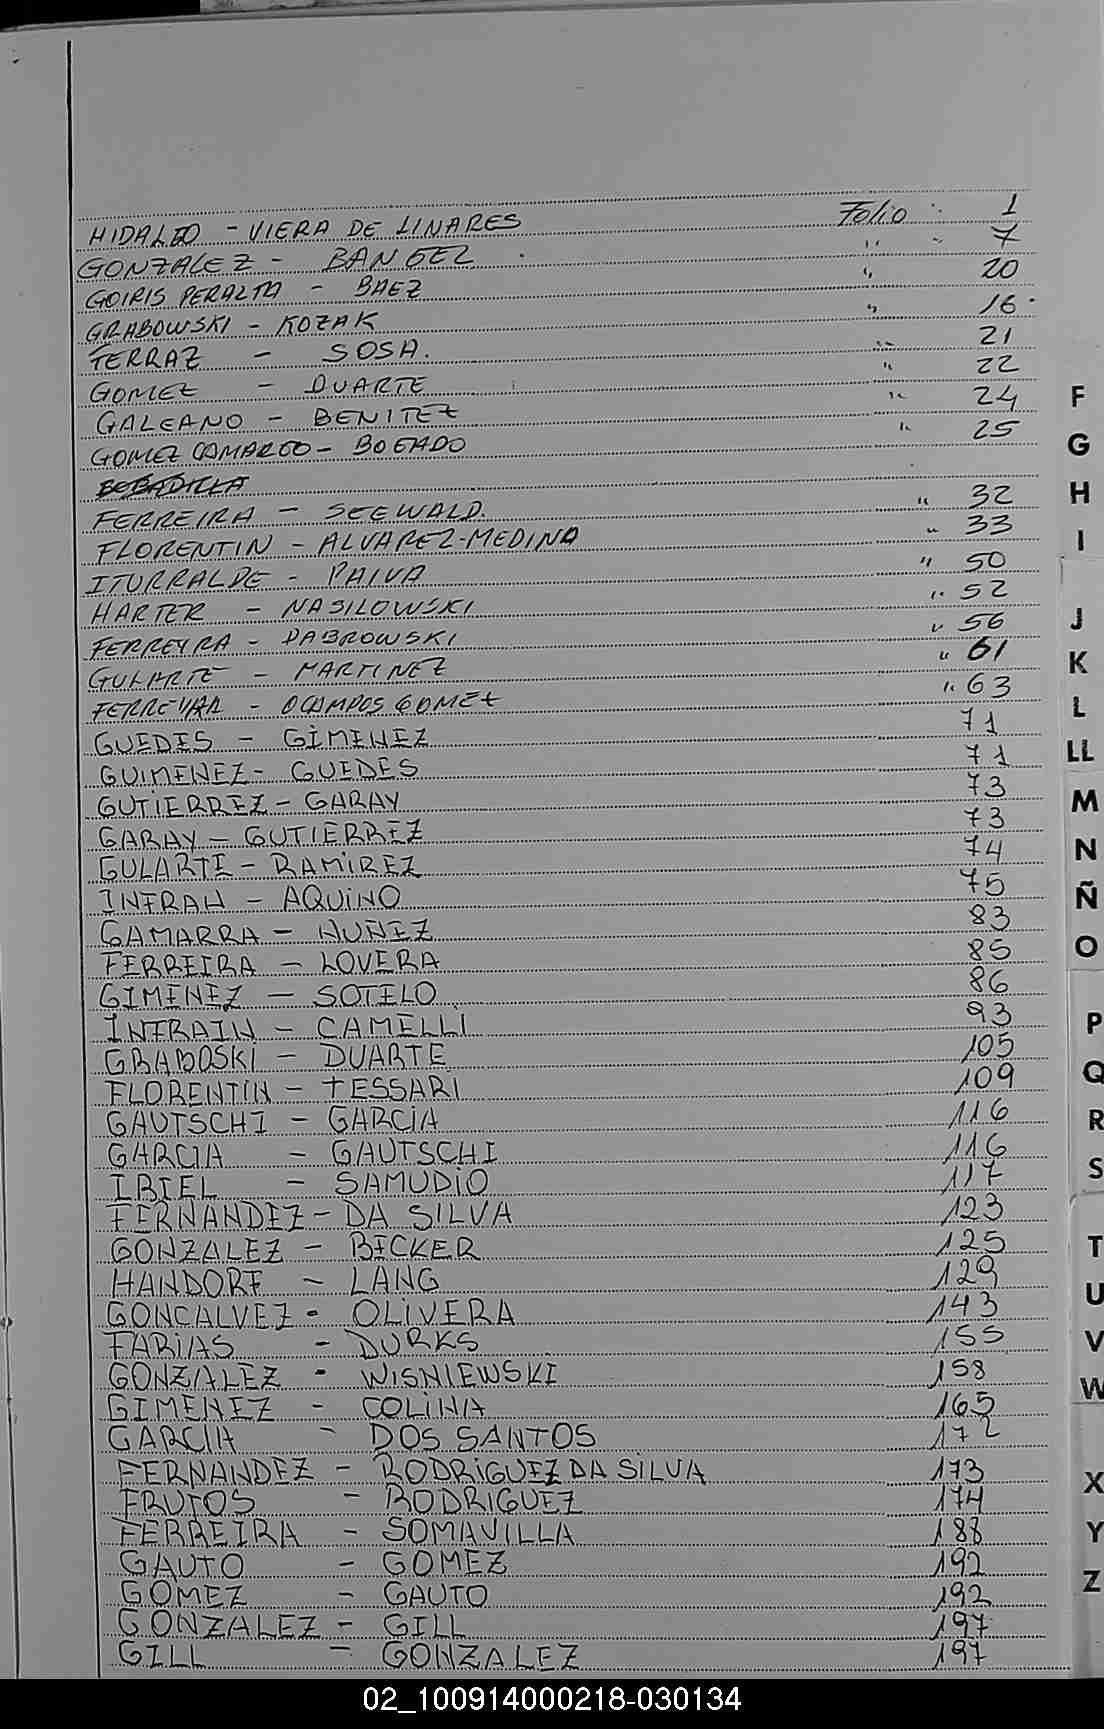 HIDALGO - VIERA DE LINARES Folio : 1
GONZALEZ - BANGEL " " 7
GOIRIS PERALTA - BAEZ " 20
GRABOWSKI - KOZAK " 16
FERRAZ - SOSA. " 21
GOMEZ - DUARTE " 22
GALEANO - BENITEZ " 24
GOMEZ CAMARGO - BOGADO " 25
BOBADILLA
FERREIRA - SEEWALD. " 32
FLORENTIN - ALVAREZ-MEDINA " 33
ITURRALDE - PAIVA " 50
HARTER - NASILOWSKI " 52
FERREYRA - DABROWSKI " 56
GULARTE - MARTINEZ " 61
FERREYRA - OCAMPOS GOMEZ " 63
GUEDES - GIMENEZ 71
GUIMENEZ - GUEDES 71
GUTIERREZ - GARAY 73
GARAY - GUTIERREZ 73
GULARTE - RAMIREZ 74
INFRAN - AQUINO 75
GAMARRA - NUÑEZ 83
FERREIRA - LOVERA 85
GIMENEZ - SOTELO 86
INFRAIN - CAMELLI 93
GRABOSKI - DUARTE 105
FLORENTIN - TESSARI 109
GAUTSCHI - GARCIA 116
GARCIA - GAUTSCHI 116
IBIEL - SAMUDIO 117
FERNANDEZ - DA SILVA 123
GONZALEZ - BECKER 125
HANDORF - LANG 129
GONCALVEZ - OLIVERA 143
FARIAS - DURKS 155
GONZALEZ - WISNIEWSKI 158
GIMENEZ - COLINA 165
GARCIA - DOS SANTOS 172
FERNANDEZ - RODRIGUEZ DA SILVA 173
FRUTOS - RODRIGUEZ 174
FERREIRA - SOMAVILLA 188
GAUTO - GOMEZ 192
GOMEZ - GAUTO 192
GONZALEZ - GILL 197
GILL - GONZALEZ 197
F
G
H
I
J
K
L
LL
M
N
Ñ
O
P
Q
R
S
T
U
V
W
X
Y
Z
02_100914000218-030134